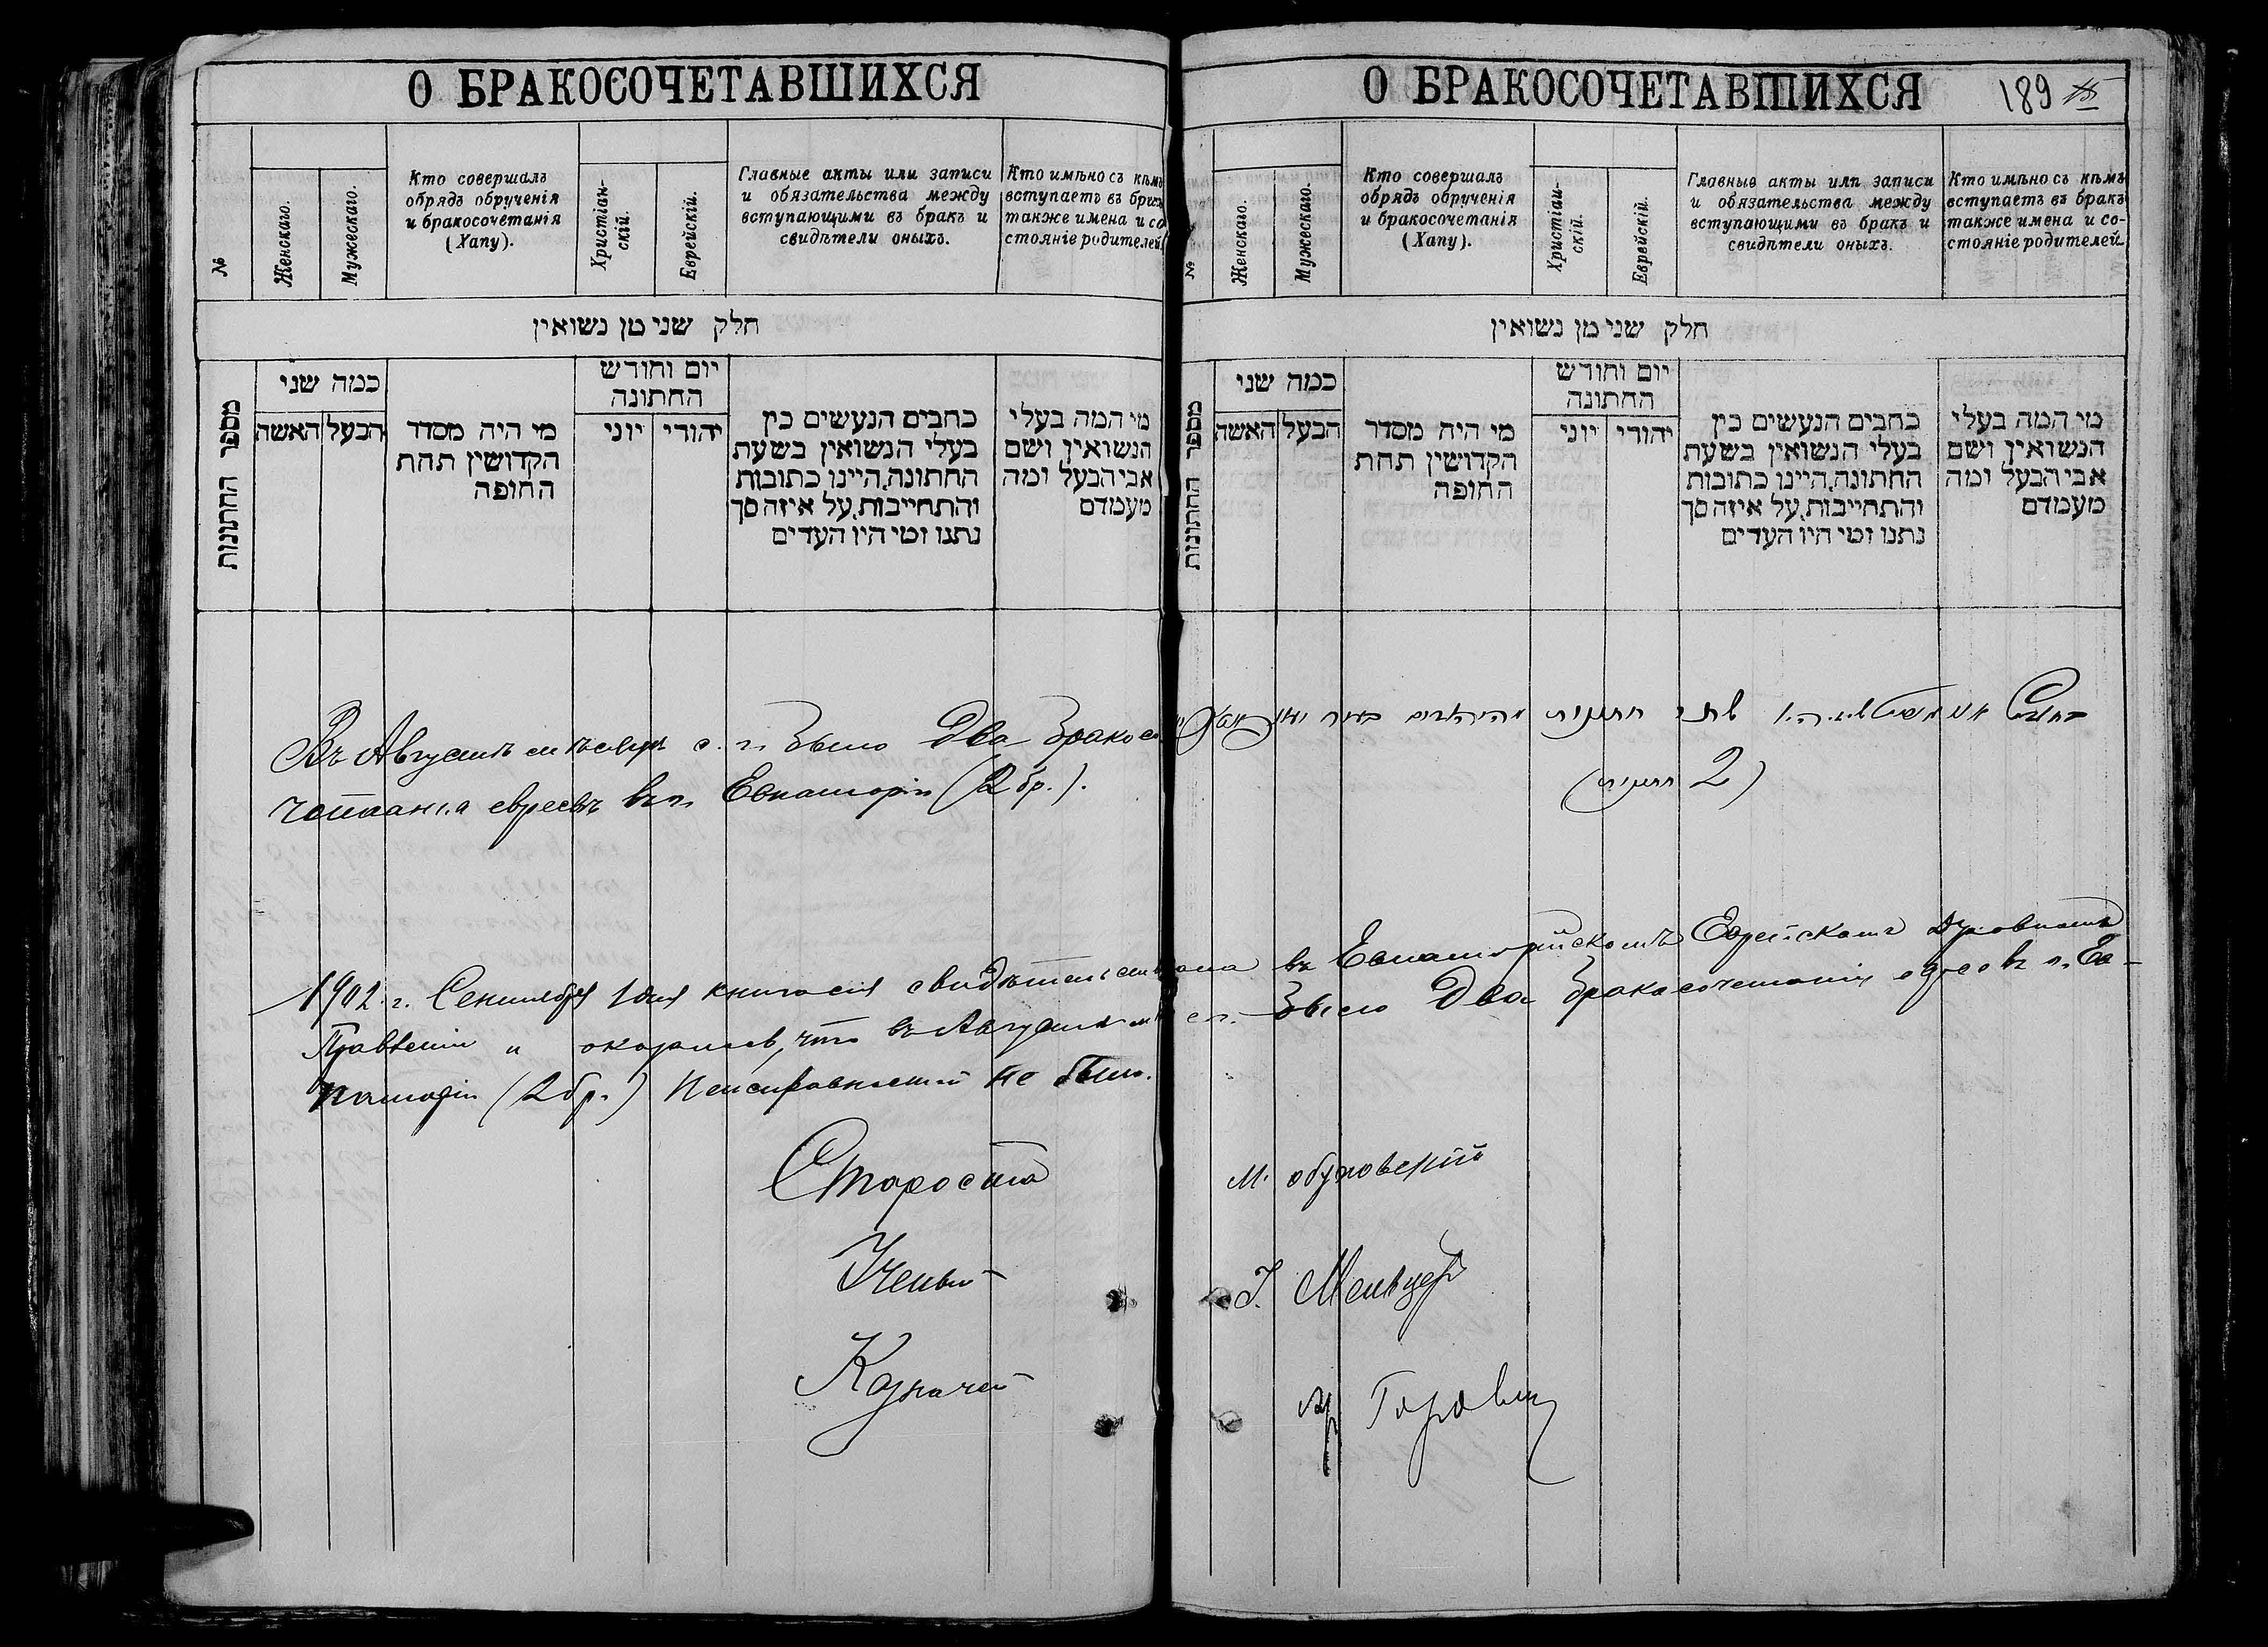 О БРАКОСОЧЕТАВШИХСЯ
№
Женскаго.
Мужескаго.
Кто совершалъ
обрядъ обрученія
и бракосочетанія
(Хапу).
Христіан-
скій.
Еврейскій.
Главные акты или записи
и обязательства между
вступающими въ бракъ и
свидѣтели оныхъ.
Кто имѣно съ кѣмъ
вступаетъ въ бракъ
также имена и со
стояніе родителей
חלק שני מן נשואין
מספר החתונות
כמה שני
האשה
הבעל
מי היה מסדר
הקדושין תחת
החופה
יום וחודש
החתונה
יוני
יהודי
כתבים הנעשים בין
בעלי הנשואין בשעת
החתונה, היינו כתובות
והתחייבות, על איזה סך
נתנו ומי היו העדים
מי המה בעלי
הנשואין ושם
אבי הבעל ומה
מעמדם
Въ Августѣ мѣсяцѣ с. г. было Два бракосо
четанія евреевъ въ г. Евпаторіи (2 бр.).
О БРАКОСОЧЕТАВШИХСЯ
189
№
Женскаго.
Мужескаго.
Кто совершалъ
обрядъ обрученія
и бракосочетанія
(Хапу).
Христіан-
скій.
Еврейскій.
Главные акты или записи
и обязательства между
вступающими въ бракъ и
свидѣтели оныхъ.
Кто имѣно съ кѣмъ
вступаетъ въ бракъ
также имена и со-
стояніе родителей
חלק שני מן נשואין
מספר החתונות
כמה שני
האשה
הבעל
מי היה מסדר
הקדושין תחת
החופה
יום וחודש
החתונה
יוני
יהודי
כתבים הנעשים בין
בעלי הנשואין בשעת
החתונה, היינו כתובות
והתחייבות, על איזה סך
נתנו ומי היו העדים
מי המה בעלי
הנשואין ושם
אבי הבעל ומה
מעמדם
שתי חתונות מהיהודים בעיר
(2 חתונות)
1902 г. Сентября 1 дня книга сія свидѣтельствована въ Евпаторійскомъ Еврейскомъ Духовномъ
Правленіи и оказалось, что въ Августѣ м-цѣ с. г. было Два бракосочетанія евреевъ въ г. Ев-
паторіи (2 бр.) Неисправностей не было.
Староста М. Обуховскій
Ученый І.
Казначей Горовиц